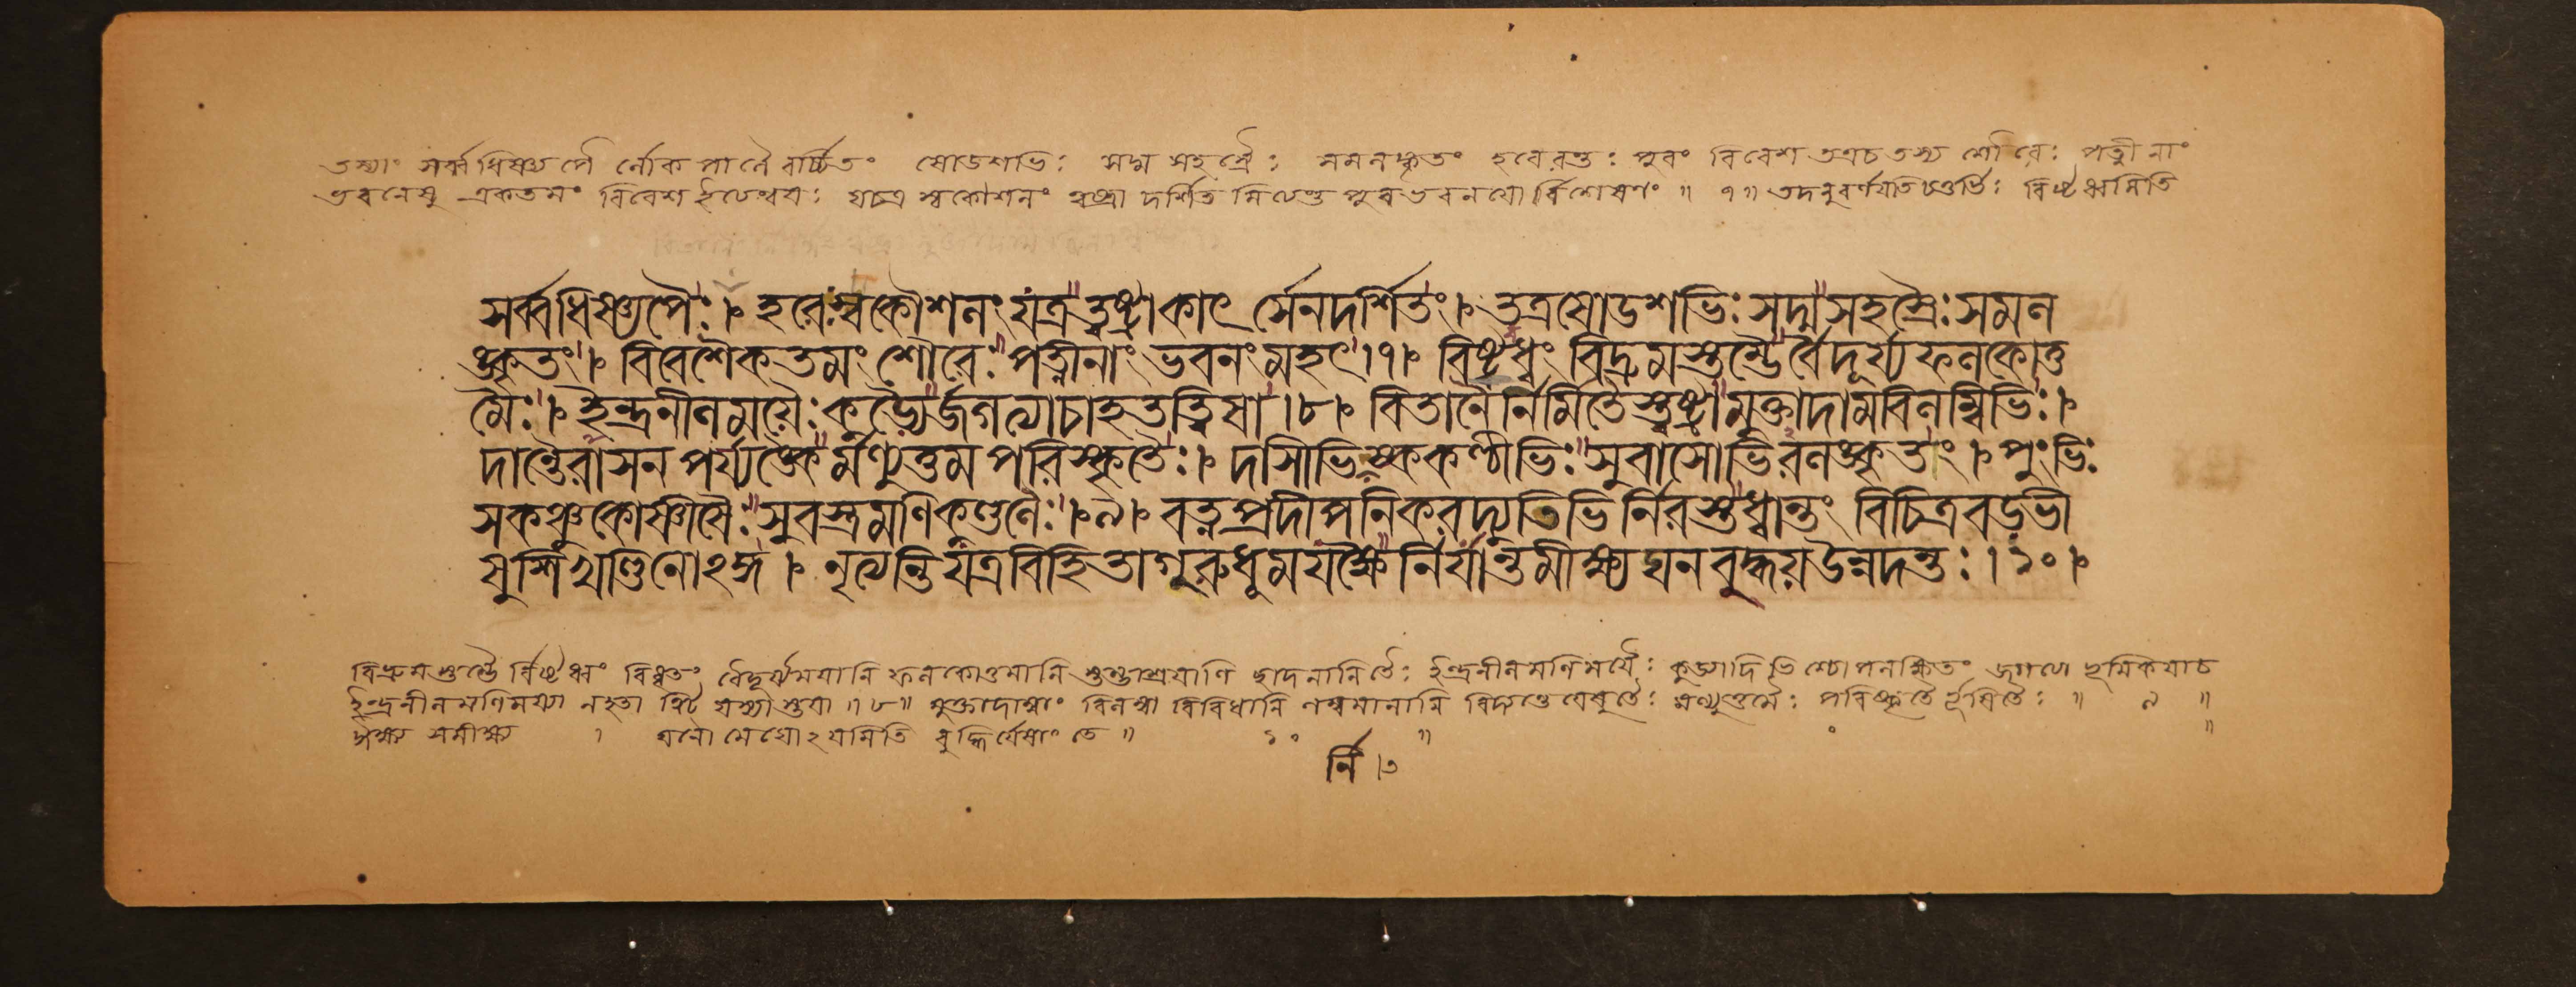 তস্যাং সর্ব্বধিষ্ণ্যপৈ র্লোকপালৈ রর্চ্চিতং ষোডশভিঃ সদ্ম সহস্রৈঃ সমলঙ্কৃতং হরেরন্তঃ পুরং বিবেশ তত্রচ তস্য শৌরেঃ পত্নীনাং
ভবনেষু একতমং বিবেশ ইত্যন্বয়ঃ যচত্র স্বকৌশলং ত্বষ্ট্রা দর্শিত মিত্যন্ত পুরভবনয়ো র্বিশেষণং ॥ ৭ ॥ তদনুবর্ণয়তি চতুর্ভিঃ বিষ্টব্ধমিতি
সর্ব্বধিষ্ণ্যপৈঃ। হরেঃস্বকৌশলং যত্রত্বষ্ট্রাকাৎর্স্নেনদর্শিতং। তত্রষোডশভিঃসদ্মসহস্রৈঃসমল
ঙ্কৃতং। বিবেশৈকতমং শৌরেঃপত্নীনাং ভবনংমহৎ।৭। বিষ্টব্ধং বিদ্রুমস্তম্ভৈর্বৈদূর্য্যফলকোত্ত
মৈঃ। ইন্দ্রনীলময়ৈঃকুড্যৈর্জগত্যাচাহতত্বিষা।৮। বিতানৈর্নির্মিতৈস্ত্বষ্ট্রামুক্তাদামবিলম্বিভিঃ।
দান্তৈরাসনপর্য্যঙ্কৈর্মণ্যুত্তমপরিস্কৃতৈঃ। দাসীভির্নিষ্ককণ্ঠীভিঃসুবাসোভিরলঙ্কৃতং। পুংভিঃ
সকঞ্চুকোষ্ণীষৈঃসুবস্ত্রমণিকুণ্ডলৈঃ।৯। রত্নপ্রদীপনিকরদ্যুতিভির্নিরস্তধ্বান্তং বিচিত্রবড়ভী
ষুশিখণ্ডিনোঽঙ্গ। নৃত্যন্তিযত্রবিহিতাগুরুধূমযক্ষৈর্নির্যান্তমীক্ষ্যঘনবুদ্ধয়উন্নদন্তঃ।১০।
বিদ্রুমস্তম্ভৈ র্বিষ্টব্ধং বিধৃতং বৈদূর্য্যময়ানি ফলকোত্তমানি স্তম্ভাশ্রয়াণি ছাদনানি তৈঃ ইন্দ্রনীলমণিময়ৈঃ কুড্যাদিভিশ্চোপলক্ষিতং জগত্যা ভূমিকয়াচ
ইন্দ্রনীলমণিময্যা নহতা ত্বিট্ যস্যাস্তয়া ॥ ৮ ॥ মুক্তাদাম্নাং বিলম্বা বিবিধানি লম্বমানানি বিদ্যন্তে যেষু তৈঃ মণ্যুত্তমৈঃ পরিষ্কৃতৈ র্ভূষিতৈঃ ॥ ৯ ॥
ঈক্ষ্য সমীক্ষ্য । ঘনো মেঘোঽয়মিতি বুদ্ধির্যেষাং তে ॥ ১০ ॥
র্নি